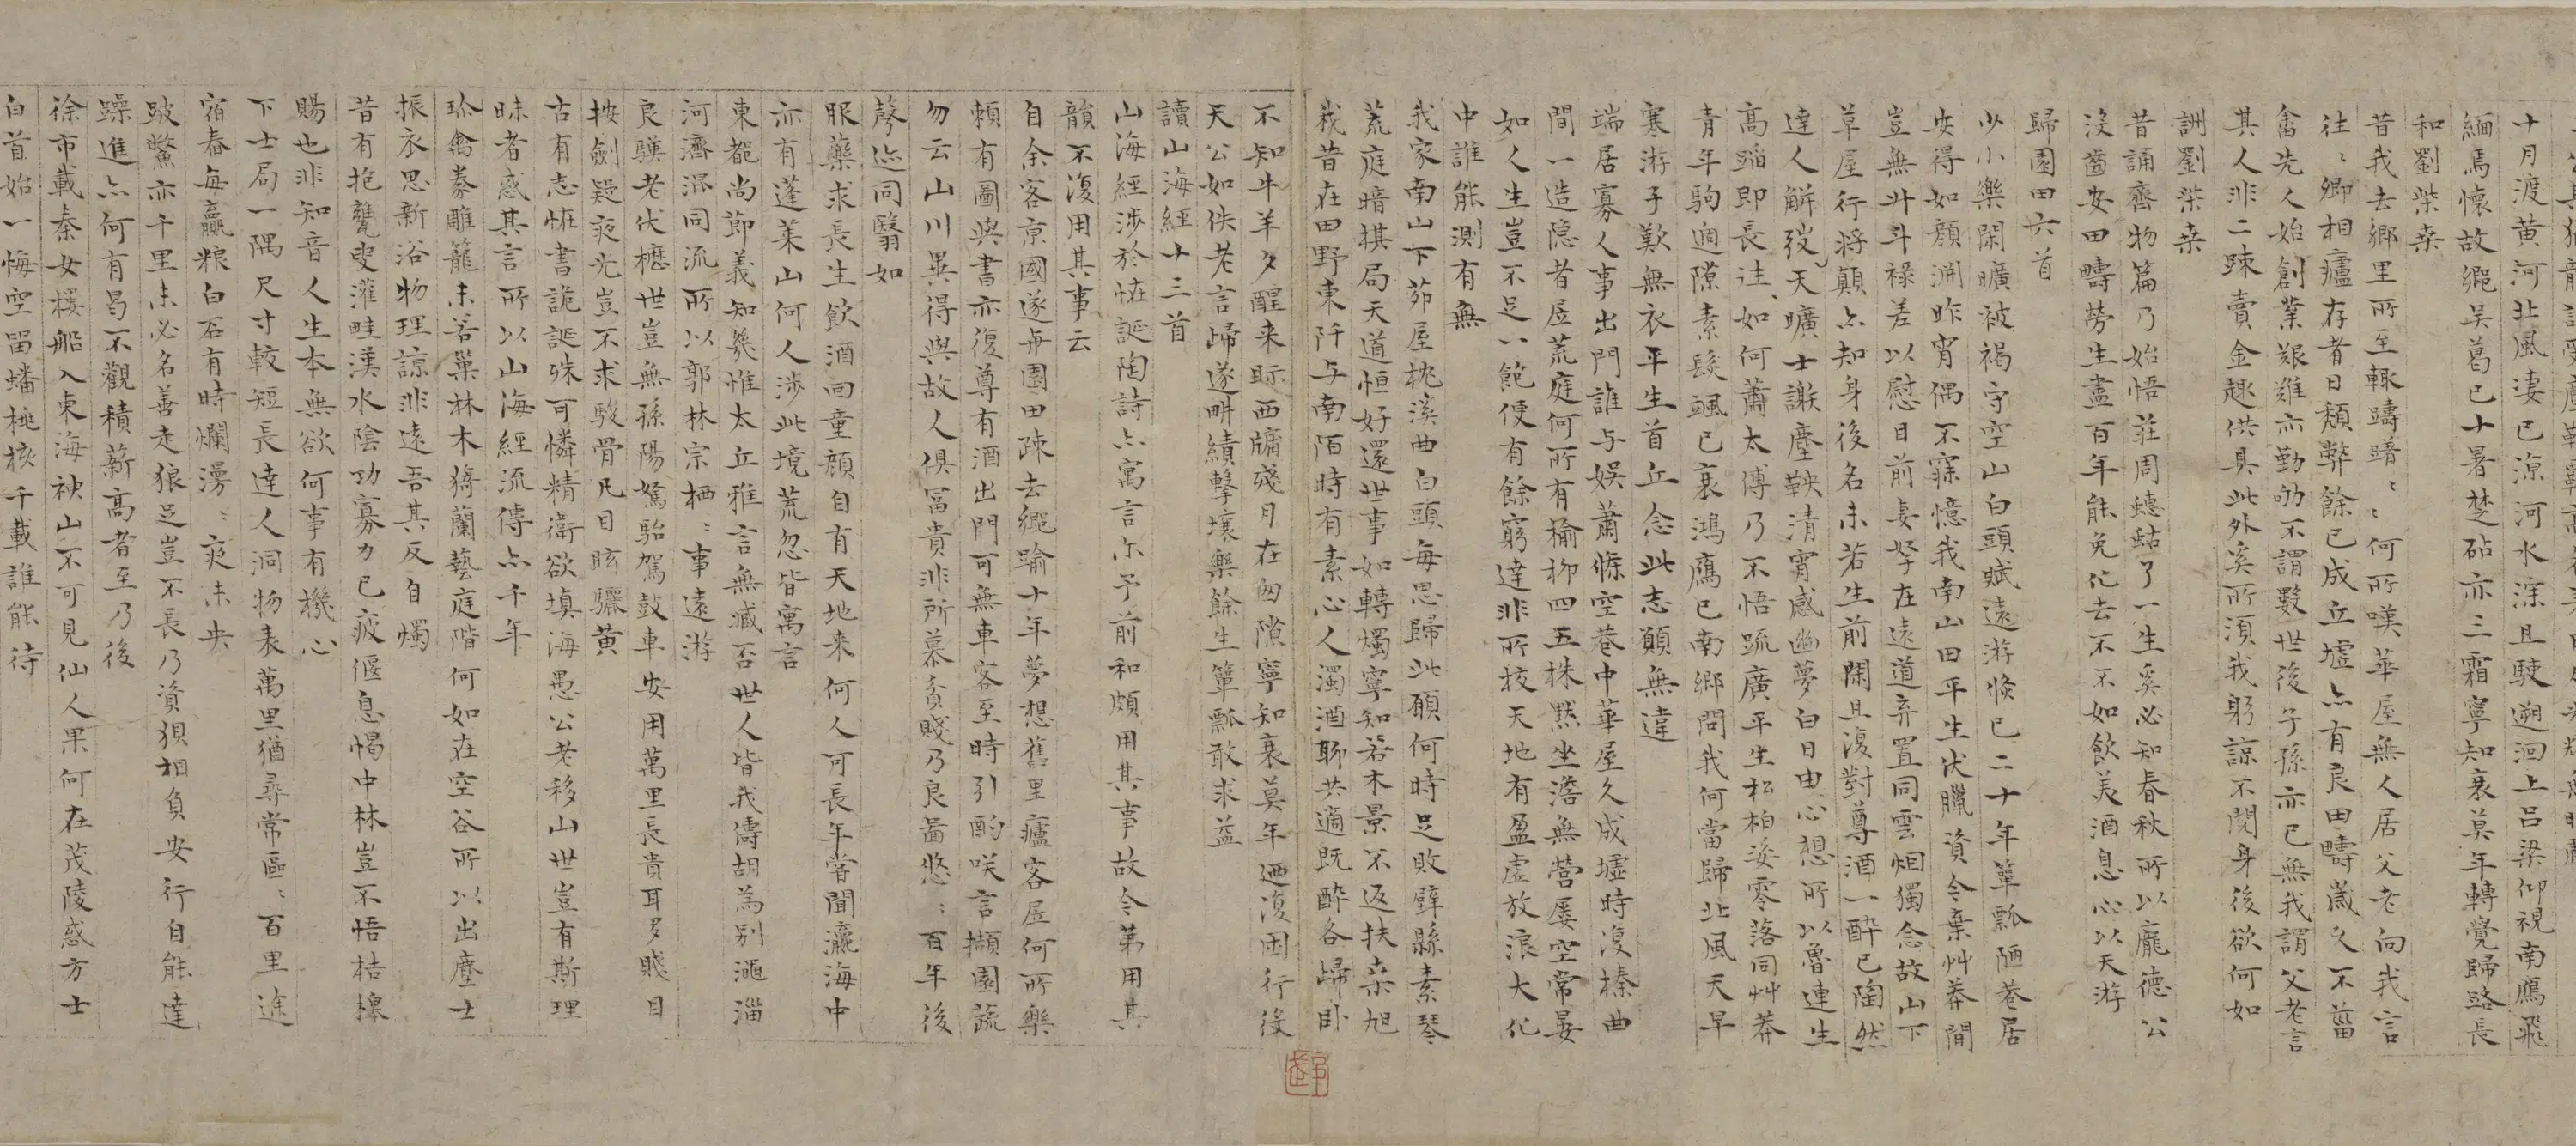 十月渡黄河北風淒已凉河水深且駛遡洄上呂梁仰視南鴈飛
緬焉懷故鄉吴葛已十暑楚砧亦三霜寧知衰莫年轉覺歸路長
和劉柴桑
昔我去鄉里所至輒躊躇:何所嘆華屋無人居父老向我言
往:卿相廬存者日頽弊餘已成丘墟亦有良田疇歲久不菑
畬先人始創業艱難亦勤劬不謂數世後子孫亦已無我謂父老言
其人非二疎賣金趣供具此外奚所須我躬諒不閱身後欲何如
詶劉柴桒
昔誦齊物篇乃始悟莊周蟪蛄了一生奚必知春秋所以龐德公
沒齒安田疇勞生盡百年能免化去不不如飲美酒息心以天游
歸園田六首
少小樂閑曠被褐守空山白頭賦遠游倏已二十年簞瓢陋巷居
安得如顔淵昨宵偶不寐憶我南山田平生伏臘資今棄艸莽間
豈無升斗禄差以慰目前妻孥在遠道弃置同雲烟獨念故山下
草屋行將顛亦知身後名未若生前閑且復對尊酒一醉已陶然
達人解弢天曠士謝塵鞅清宵感幽夢白日由心想所以魯連生
高蹈即長往、如何蕭太傅乃不悟疏廣平生松柏姿零落同艸莽
青年駒過隙素髮颯已衰鴻鴈已南鄉問我何當歸北風天早
寒游子歎無衣平生首丘念此志願無違
端居寡人事出門誰与娱蕭條空巷中華屋久成墟時復榛曲
間一造隐者居荒庭何所有榆柳四五株黙坐澹無營屢空常晏
如人生豈不足一飽便有餘窮達非所校天地有盈虚放浪大化
中誰能測有無
我家南山下茆屋枕溪曲白頭每思歸此願何時足敗壁縣素琴
荒庭暗棋局天道恒好還世事如轉燭寧知若木景不返扶桒旭
我昔在田野東阡与南陌時有素心人濁酒聊共適既醉各歸卧
不知牛羊夕醒来眎西牖殘月在囪隙寧知衰莫年迺復困行役
天公如佚老言歸遂畊績擊壤樂餘生簞瓢敢求益
讀山海經十三首
山海經涉於恠誕陶詩亦寓言尓予前和頗用其事故令苐用其
韻不復用其事云
自余客京國遂与園田疎去鄉踰十年夢想舊里廬客居何所樂
頼有圖與書亦復尊有酒出門可無車客至時引酌咲言擷園蔬
勿云山川異得與故人俱冨貴非所慕貧賤乃良啚悠:百年後
聲迹同翳如
服藥求長生飲酒回童顔自有天地来何人可長年嘗聞瀛海中
亦有蓬莱山何人涉此境荒忽皆寓言
東都尚節義知幾惟太丘雅言無臧否世人皆我儔胡為别澠淄
河濟混同流所以郭林宗栖:事遠游
良驥老伏櫪世豈無孫陽駑駘駕鼓車安用萬里長貴耳多賤目
按劍疑夜光豈不求駿骨凡目眩驪黄
古有志恠書詭誕殊可憐精衛欲填海愚公老移山世豈有斯理
昧者惑其言所以山海經流傳亦千年
珎禽豢雕籠未若巢林木猗蘭藝庭階何如在空谷所以出塵士
振衣思新浴物理諒非遠吾其反自燭
昔有抱甕叟灌畦漢水陰功寡力已疲偃息愒中林豈不悟桔槔
賜也非知音人生本無欲何事有機心
下士局一隅尺寸較短長達人洞物表萬里猶尋常區:百里途
宿舂每贏粮白石有時爛漫:夜未央
跛鱉亦千里未必名善走狼足豈不長乃資狽相負安行自能達
躁進亦何有曷不觀積薪高者至乃後
徐市載秦女樓船入東海神山不可見仙人果何在茂陵惑方士
白首始一悔空留蟠桃核千載誰能待